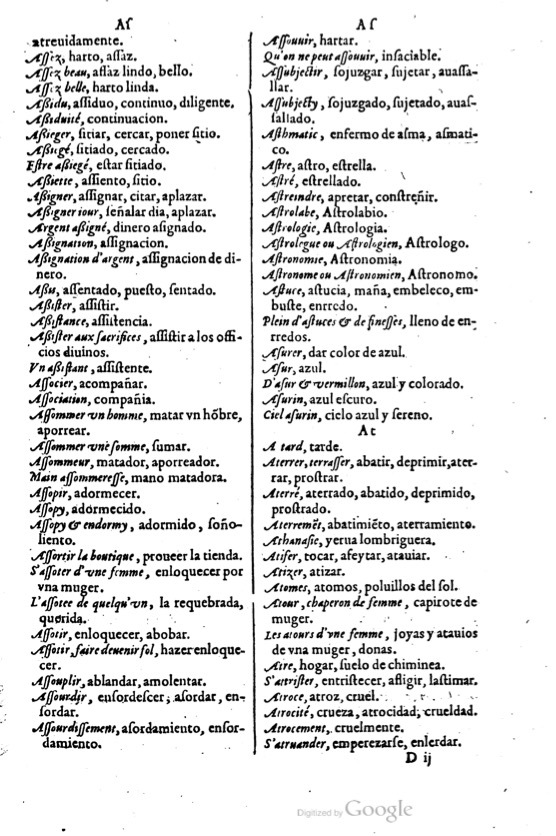 Aſ
atreuidamente.
Aſſez, harto, aſſaz.
Aſſez beau, aſſaz lindo, bello.
Aſſez belle, harto linda.
Aßidu, aſſiduo, continuo, diligente.
Aßiduité, continuacion.
Aßieger, ſitiar, cercar, poner ſitio.
Aßiegé, ſitiado, cercado.
Eſtre aßiegé, eſtar ſitiado.
Aßiette, aſſiento, ſitio.
Aßigner, aſſignar, citar, aplazar.
Aßigner iour, ſeñalar dia, aplazar.
Argent aßigné, dinero aſignado.
Aßignation, aſſignacion.
Aßignation d'argent, aſſignacion de di-
nero.
Aßis, aſſentado, pueſto, ſentado.
Aßiſter, aſſiſtir.
Aßiſtance, aſſiſtencia.
Aßiſter aux ſacrifices, aſſiſtir a los offi-
cios diuinos.
Vn aßiſtant, aſſiſtente.
Aſſocier, acompañar.
Aſſociation, compañia.
Aſſommer vn homme, matar vn hõbre,
aporrear.
Aſſommer vne ſomme, ſumar.
Aſſommeur, matador, aporreador.
Main aſſommereſſe, mano matadora.
Aſſopir, adormecer.
Aſſopy, adormecido.
Aſſopy & endormy, adormido, ſoño-
liento.
Aſſortir la boutique, proueer la tienda.
S'aſſoter d'vne femme, enloquecer por
vna muger.
L'aſſotee de quelqu'vn, la requebrada,
querida.
Aſſotir, enloquecer, abobar.
Aſſotir, faire deuenir fol, hazer enloque-
cer.
Aſſouplir, ablandar, amolentar.
Aſſourdir, enſordeſcer, aſordar, en-
ſordar.
Aſſourdiſſement, aſordamiento, enſor-
damiento.
Aſ
Aſſouuir, hartar.
Qu'on ne peut aſſouuir, inſaciable.
Aſſubjectir, ſojuzgar, ſujetar, auaſſa-
llar.
Aſſubjecty, ſojuzgado, ſujetado, auaſ-
ſallado.
Aſthmatic, enfermo de aſma, aſmati-
co.
Aſtre, aſtro, eſtrella.
Aſtré, eſtrellado.
Aſtreindre, apretar, conſtreñir.
Aſtrolabe, Aſtrolabio.
Aſtrologie, Aſtrologia.
Aſtrologue ou Aſtrologien, Aſtrologo.
Aſtronomie, Aſtronomia.
Aſtronome ou Aſtronomien, Aſtronomo.
Aſtuce, aſtucia, maña, embeleco, em-
buſte, enrredo.
Plein d'aſtuces & de fineſſes, lleno de en-
rredos.
Aſurer, dar color de azul.
Aſur, azul.
D'aſur & vermillon, azul y colorado.
Aſurin, azul eſcuro.
Ciel aſurin, cielo azul y ſereno.
At
A tard, tarde.
Aterrer, terraſſer, abatir, deprimir, ater-
rar, proſtrar.
Aterré, aterrado, abatido, deprimido,
proſtrado.
Aterremēt, abatimiēto, aterramiento.
Athanaſie, yerua lombriguera.
Atifer, tocar, afeytar, atauiar.
Atizer, atizar.
Atomes, atomos, poluillos del ſol.
Atour, chaperon de femme, capirote de
muger.
Les atours d'vne femme, joyas y atauios
de vna muger, donas.
Atre, hogar, ſuelo de chiminea.
S'atriſter, entriſtecer, afligir, laſtimar.
Atroce, atroz, cruel.
Atrocité, crueza, atrocidad, crueldad.
Atrocement, cruelmente.
S'atruander, emperezarſe, enlerdar.
D ij
Digitized by Google